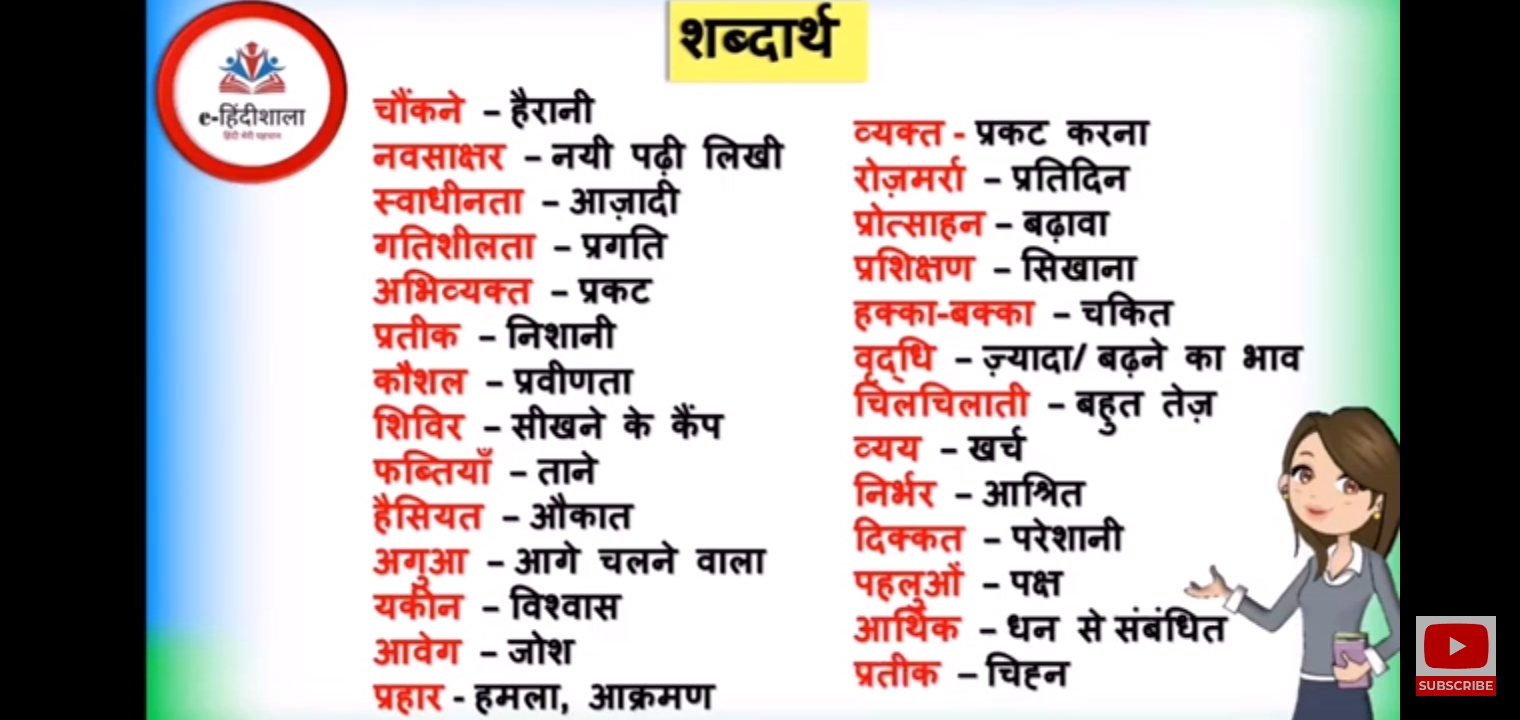 शब्दार्थ
e-हिंदीशाला
हिंदी मेरी पहचान
चौंकने – हैरानी
नवसाक्षर – नयी पढ़ी लिखी
स्वाधीनता – आज़ादी
गतिशीलता – प्रगति
अभिव्यक्त – प्रकट
प्रतीक – निशानी
कौशल – प्रवीणता
शिविर – सीखने के कैंप
फब्तियाँ – ताने
हैसियत – औकात
अगुआ – आगे चलने वाला
यकीन – विश्वास
आवेग – जोश
प्रहार - हमला, आक्रमण
व्यक्त - प्रकट करना
रोज़मर्रा – प्रतिदिन
प्रोत्साहन – बढ़ावा
प्रशिक्षण – सिखाना
हक्का-बक्का – चकित
वृद्‌धि – ज़्यादा/ बढ़ने का भाव
चिलचिलाती – बहुत तेज़
व्यय – खर्च
निर्भर – आश्रित
दिक्कत – परेशानी
पहलुओं – पक्ष
आर्थिक – धन से संबंधित
प्रतीक – चिह्न
SUBSCRIBE